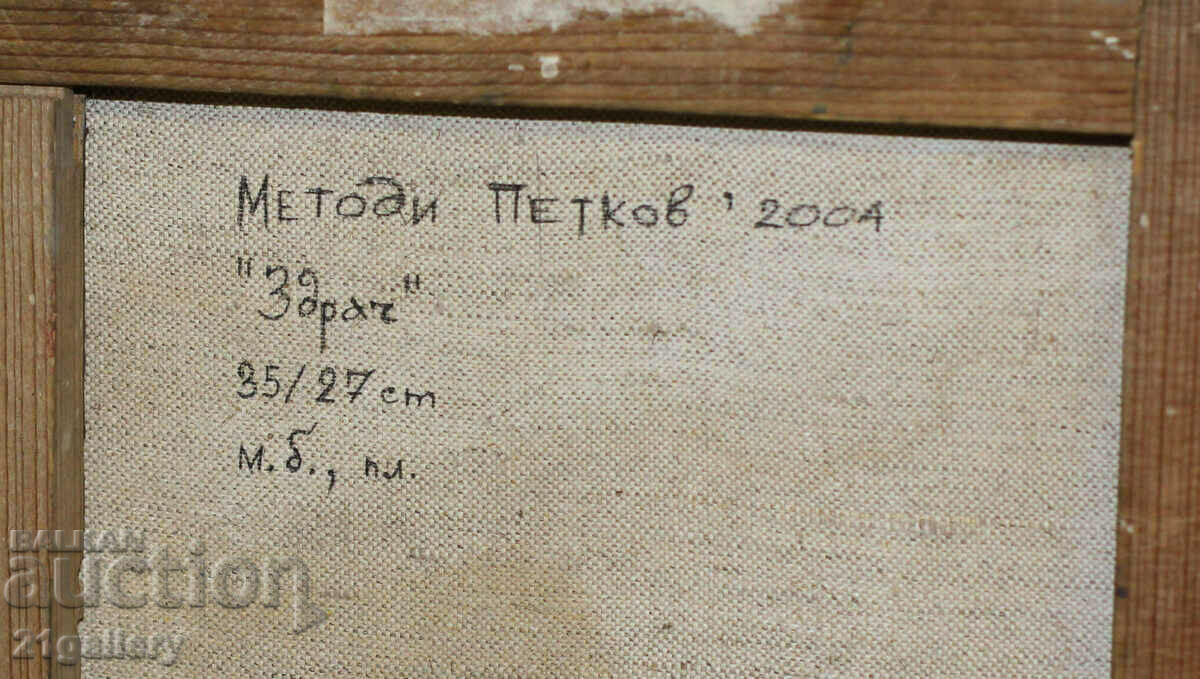 Методи Петков '2004
"Здрач"
35/27 cm
м.б., пл.
BALKAN
auction
21gallery